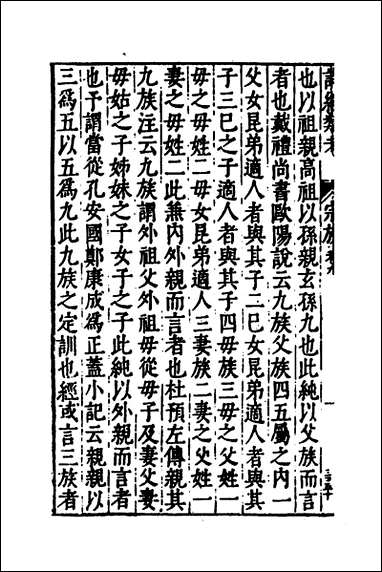 宗族
也以祖親高祖以孫親玄孫九也此純以父族而言
者也戴禮尚書歐陽說云九族父族四五屬之内一
父女昆弟適人者與其子二巳女昆弟適人者與其
子三巳之子適人者與其子四毋族三毋之父姓一
毋之毋姓二毋女昆弟適人三妻族二妻之父姓一
妻之毋姓二此兼内外親而言者也杜預左傳親其
九族注云九族謂外祖父外祖毋從毋子及妻父妻
毋姑之子姊妹之子女子之子此純以外親而言者
也予謂當從孔安國鄭康成爲正蓋小記云親親以
三爲五以五爲九此九族之定訓也經或言三族者